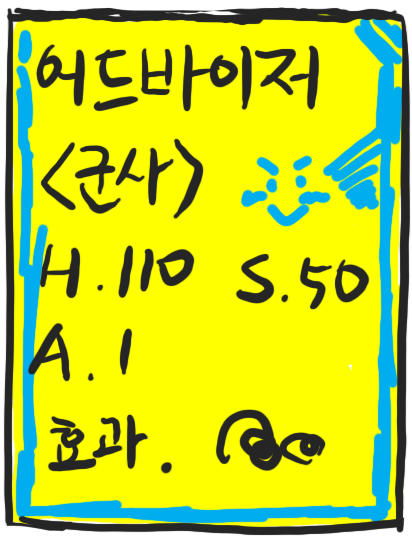 어드바이저
<군사>
H.110 S.50
A.1
효과.